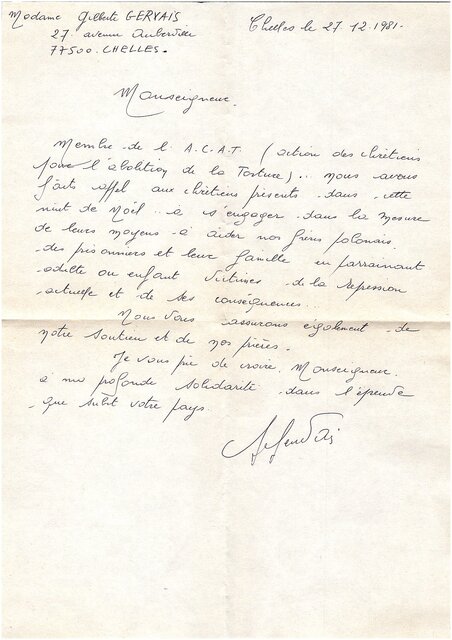 Madame Gilberte GERVAIS
27 avenue Aubervilliers
77500. CHELLES.
Chelles le 27.12.1981.
Monseigneur.
Membre de l'A.C.A.T (action des chrétiens
pour l'abolition de la Torture).. nous avons
faits appel aux chrétiens présents dans cette
nuit de Noël.. à s'engager dans la mesure
de leurs moyens à aider nos frères polonais.
des prisonniers et leur famille en parrainant
adulte ou enfant victimes de la repression
actuelle et de ses conséquences..
Nous vous assurons également de
notre soutien et de nos prières.
Je vous prie de croire, Monseigneur.
à ma profonde solidarité dans l'épreuve
que subit votre pays.